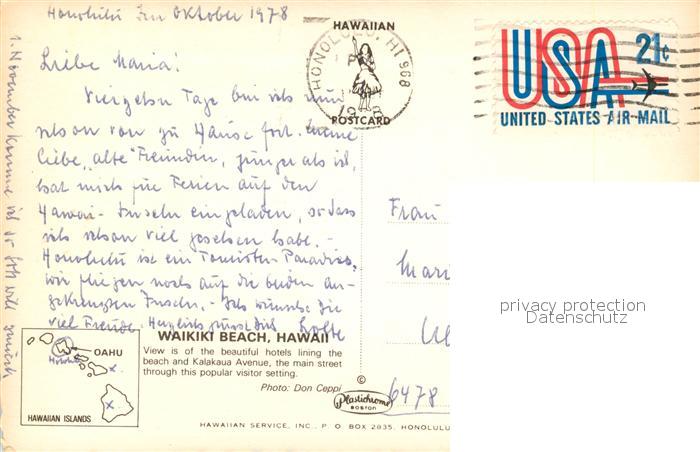 Honolulu im Oktober 1978
Liebe Maria!
Vierzehn Tage bin ich nun
schon von zu Hause fort. Meine
liebe "alte" Freundin, jünger als ich,
hat mich für Ferien auf den
Hawai-Inseln eingeladen, so dass
ich schon viel gesehen habe. -
Honolulu ist ein Touristen-Paradies.
Wir fliegen noch auf die beiden an-
gekreuzten Inseln. - Ich wünsche Dir
viel Freude. Herzlich grüsst Dich Lotte
1. November komme ich so Gott will zurück
HAWAIIAN
HONOLULU, HI 968
POSTCARD
USA 21c
UNITED STATES AIR MAIL
Frau
Mari
6478
privacy protection
Datenschutz
WAIKIKI BEACH, HAWAII
View is of the beautiful hotels lining the
beach and Kalakaua Avenue, the main street
through this popular visitor setting.
Photo: Don Ceppi
OAHU
Honolulu
HAWAIIAN ISLANDS
©
Plastichrome
BOSTON
HAWAIIAN SERVICE, INC., P. O. BOX 2835, HONOLULU